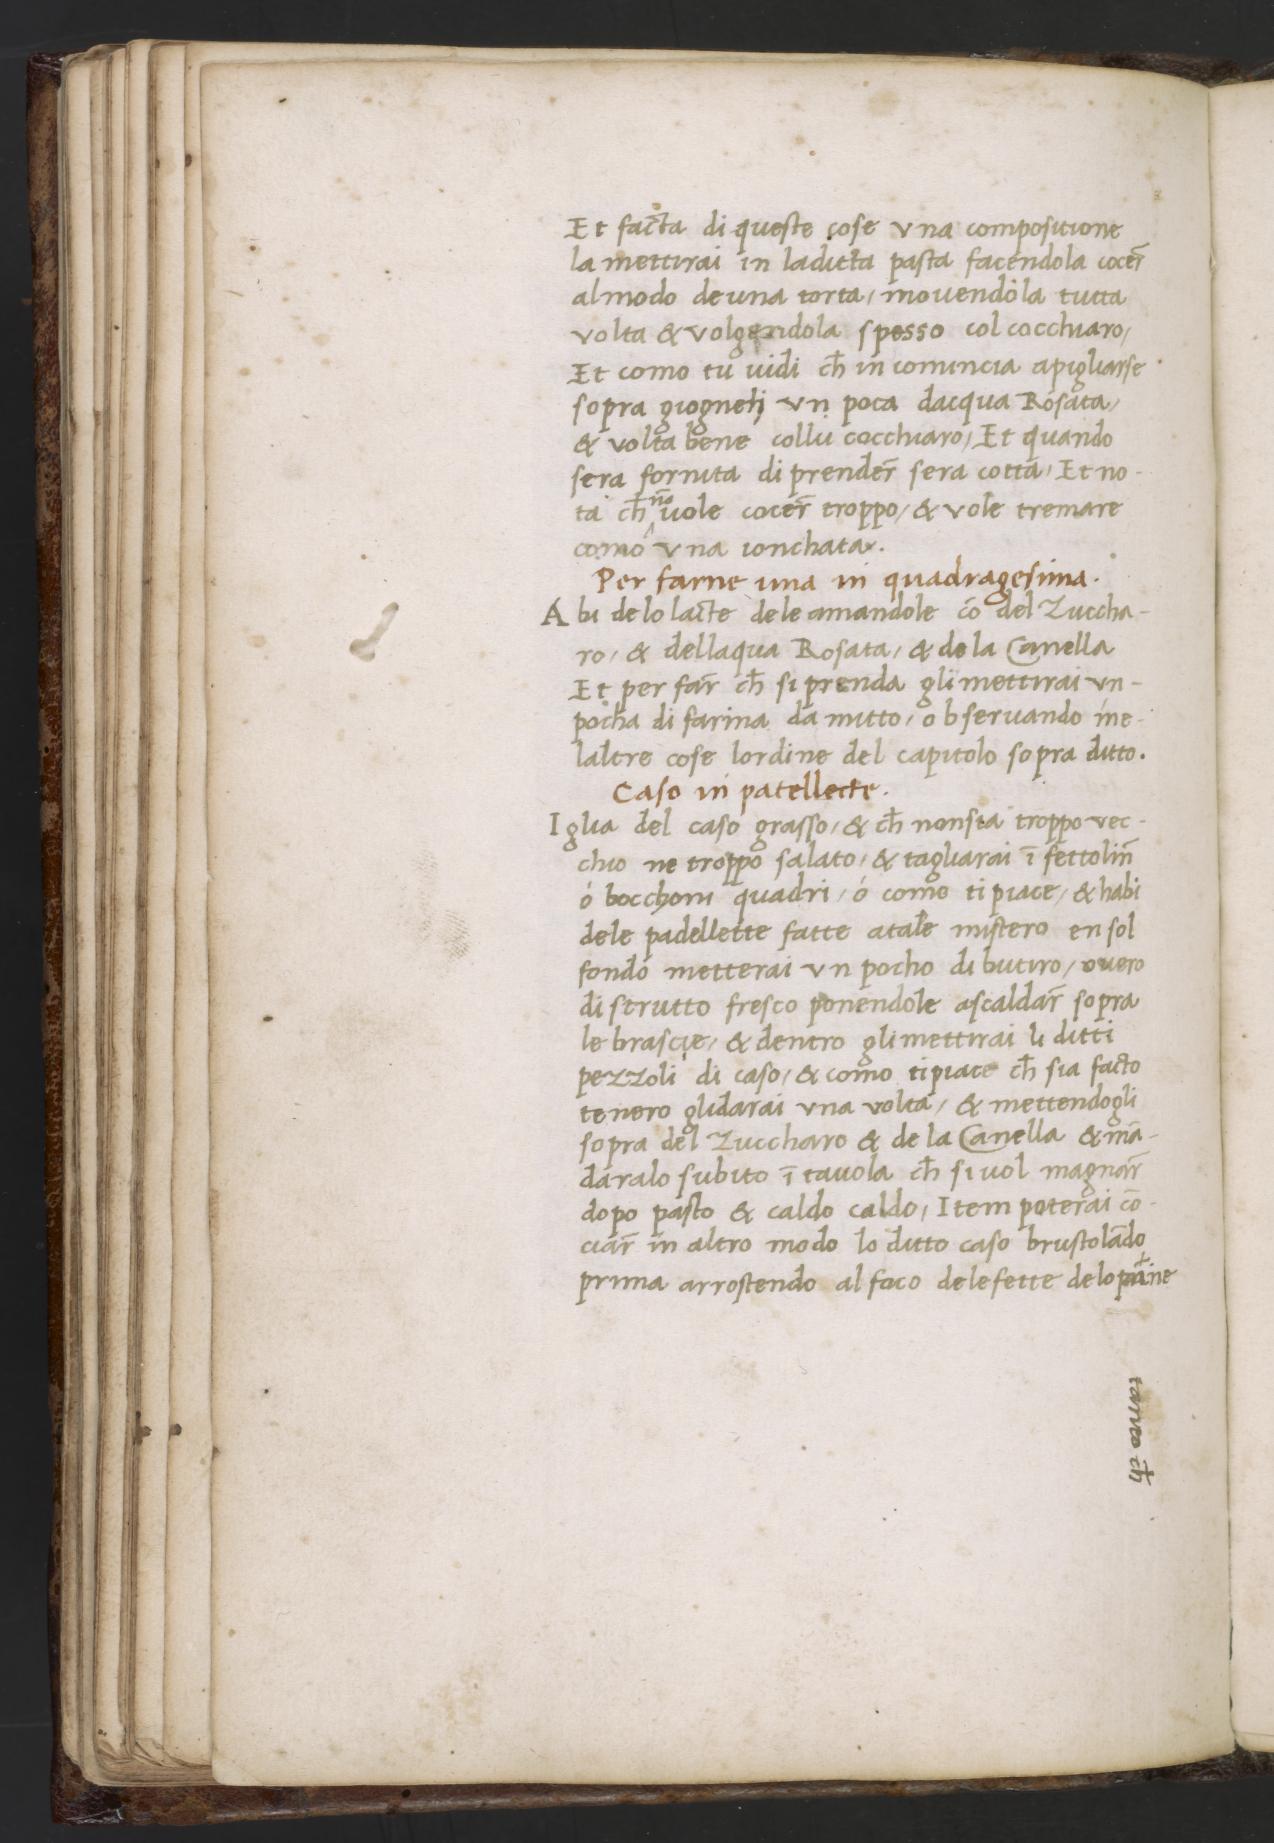 Et facta di queste cose vna compositione
la mettirai in laditta pasta facendola cocer̄
al modo de una torta/ movendola tutta
volta & volgendola spesso col cocchiaro/
Et como tu uidi ch̄ in comincia apigliarse
sopra giogneti vn poca dacqua Rosata/
& volta bene collu cocchiaro/ Et quando
sera fornita di prender̄ sera cotta/ Et no-
ta ch̄ nō uole cocer̄ troppo/ & vole tremare
como vna ionchata.
Per farne una in quadragesima.
Abi de lo lacte dele amandole cō del Zuccha-
ro/ & dellaqua Rosata/ & de la Canella
Et per far̄ ch̄ si prenda gli mettirai vn-
pocha di farina da mitto/ observando ine-
laltre cose lordine del capitolo sopra ditto.
Caso in patellecte.
Iglia del caso grasso/ & ch̄ non sia troppo vec-
chio ne troppo salato/ & tagliarai ī fettolin̄
ó bocchoni quadri/ ó como ti piace/ & habi
dele padellette fatte atale mistero en sol
fondo metterai vn pocho di butiro/ ouero
di strutto fresco ponendole ascaldar̄ sopra
le brascie/ & dentro gli mettirai li ditti
pezzoli di caso/ & como ti piace ch̄ sia facto
tenero glidarai vna volta/ & mettendogli
sopra del Zuccharo & de la Canella & mā-
daralo subito ī tavola ch̄ si uol magnar̄
dopo pasto & caldo caldo/ Item poterai cō-
ciar̄ in altro modo lo ditto caso brustolādo
prima arrostendo al foco dele fette delo pane
tanto ch̄